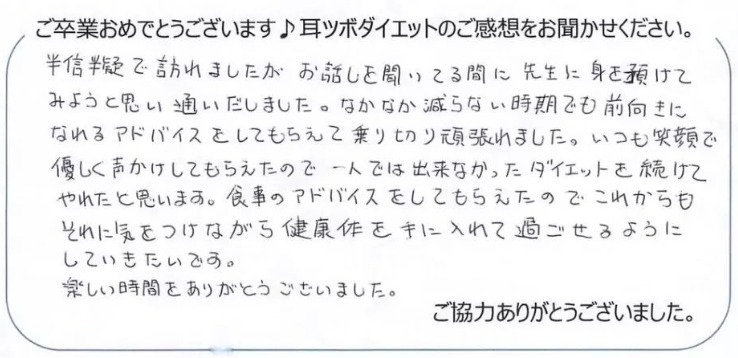 ご卒業おめでとうございます♪耳ツボダイエットのご感想をお聞かせください。
半信半疑で訪れましたが お話しを聞いてる間に 先生に 身を預けて
みようと思い 通いだしました。なかなか 減らない時期でも 前向きに
なれるアドバイスをしてもらえて 乗り切り頑張れました。いつも笑顔で
優しく声かけしてもらえたので 一人では出来なかったダイエットを 続けて
やれたと思います。食事のアドバイスをしてもらえたので これからも
それに気をつけながら 健康体を手に入れて 過ごせるように
していきたいです。
楽しい時間をありがとうございました。
ご協力ありがとうございました。